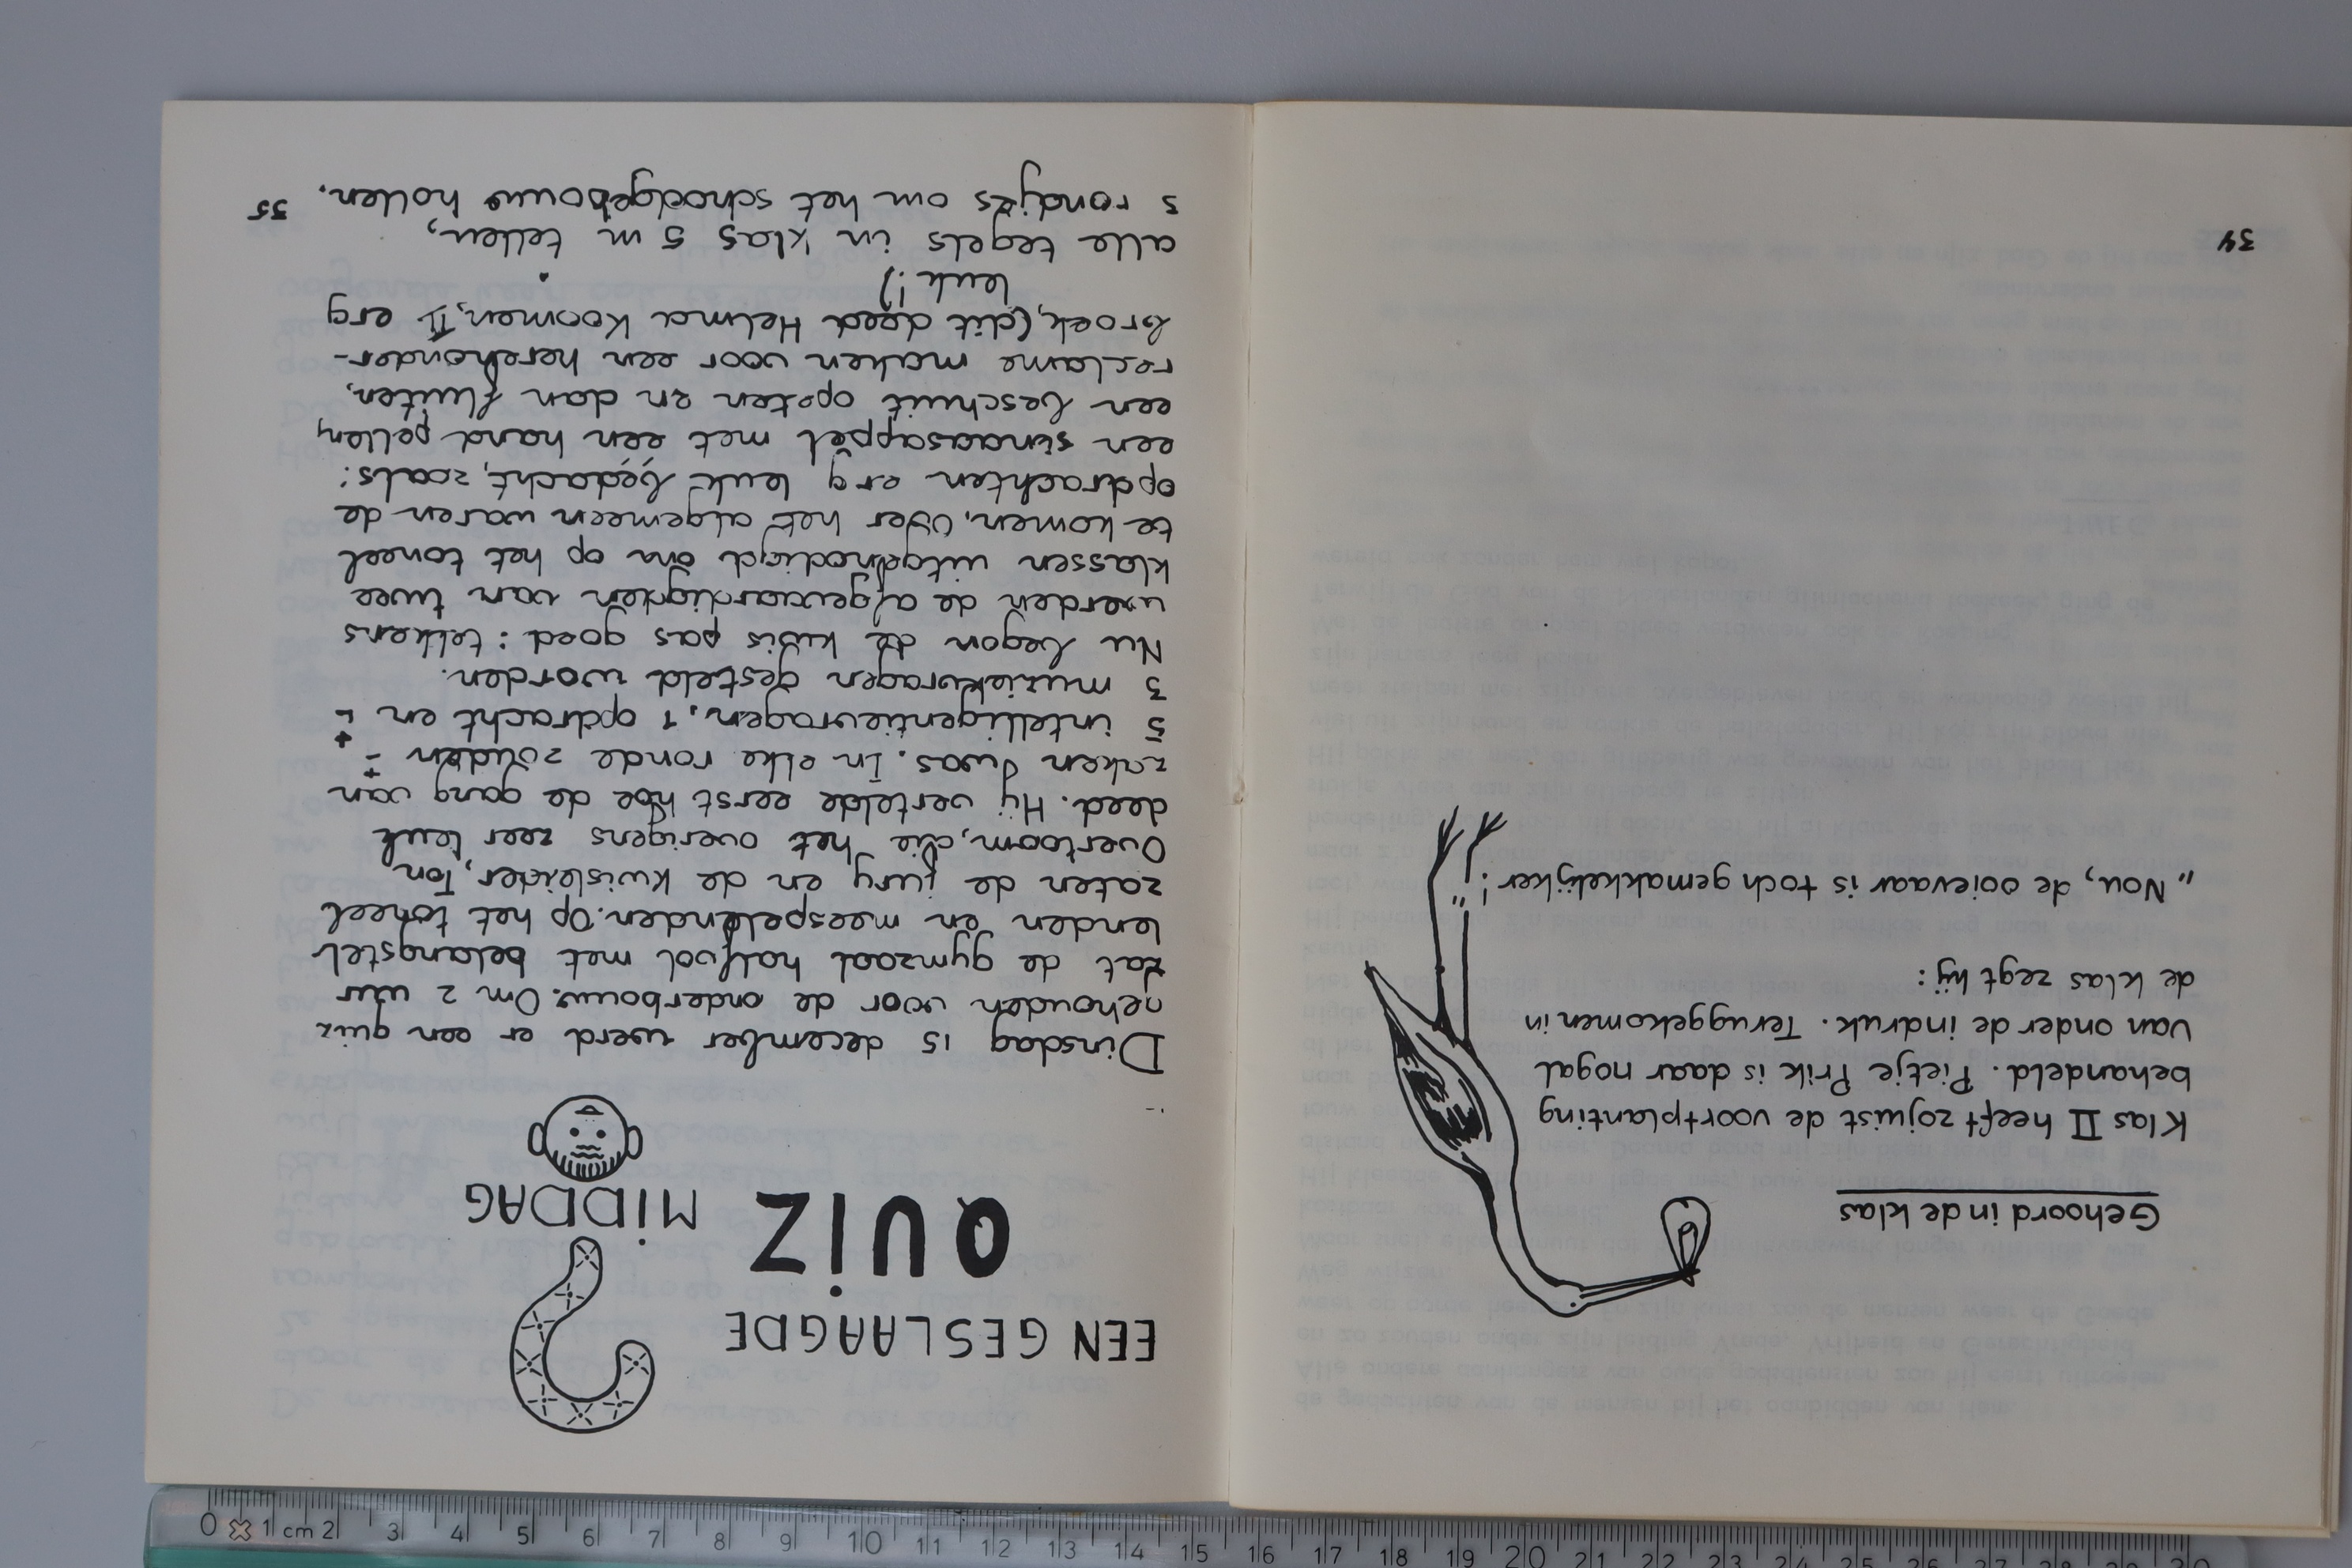 Gehoord in de klas
Klas II heeft zojuist de voortplanting
behandeld. Pietje Prik is daar nogal
van onder de indruk. Teruggekomen in
de klas zegt hij:
„Nou, de ooievaar is toch gemakkelijker!"
34
EEN GESLAAGDE
QUIZ MiDDAG
Dinsdag 15 december werd er een quiz
gehouden voor de onderbouw. Om 2 uur
zat de gymzaal halfvol met belangstel-
lenden en meespelenden. Op het toneel
zaten de jury en de kwisleider, Ton
Overtoom, die het overigens zeer leuk
deed. Hij vertelde eerst hoe de gang van
zaken was. In elke ronde zouden ±
5 intelligentievragen, 1 opdracht en ±
3 muziekvragen gesteld worden.
Nu begon de kwis pas goed: telkens
werden de afgevaardigden van twee
klassen uitgenodigd om op het toneel
te komen. Over het algemeen waren de
opdrachten erg leuk bedacht, zoals:
een sinaasappel met één hand pellen,
een beschuit opeten en dan fluiten,
reclame maken voor een herenonder-
broek, (dit deed Helma Koomen, II erg
leuk!)
alle tegels in klas 5 m tellen,
5 rondjes om het schoolgebouw hollen.
35
0 1 cm 2 3 4 5 6 7 8 9 10 11 12 13 14 15 16 17 18 19 20 21 22 23 24 25 26 27 28 29 30